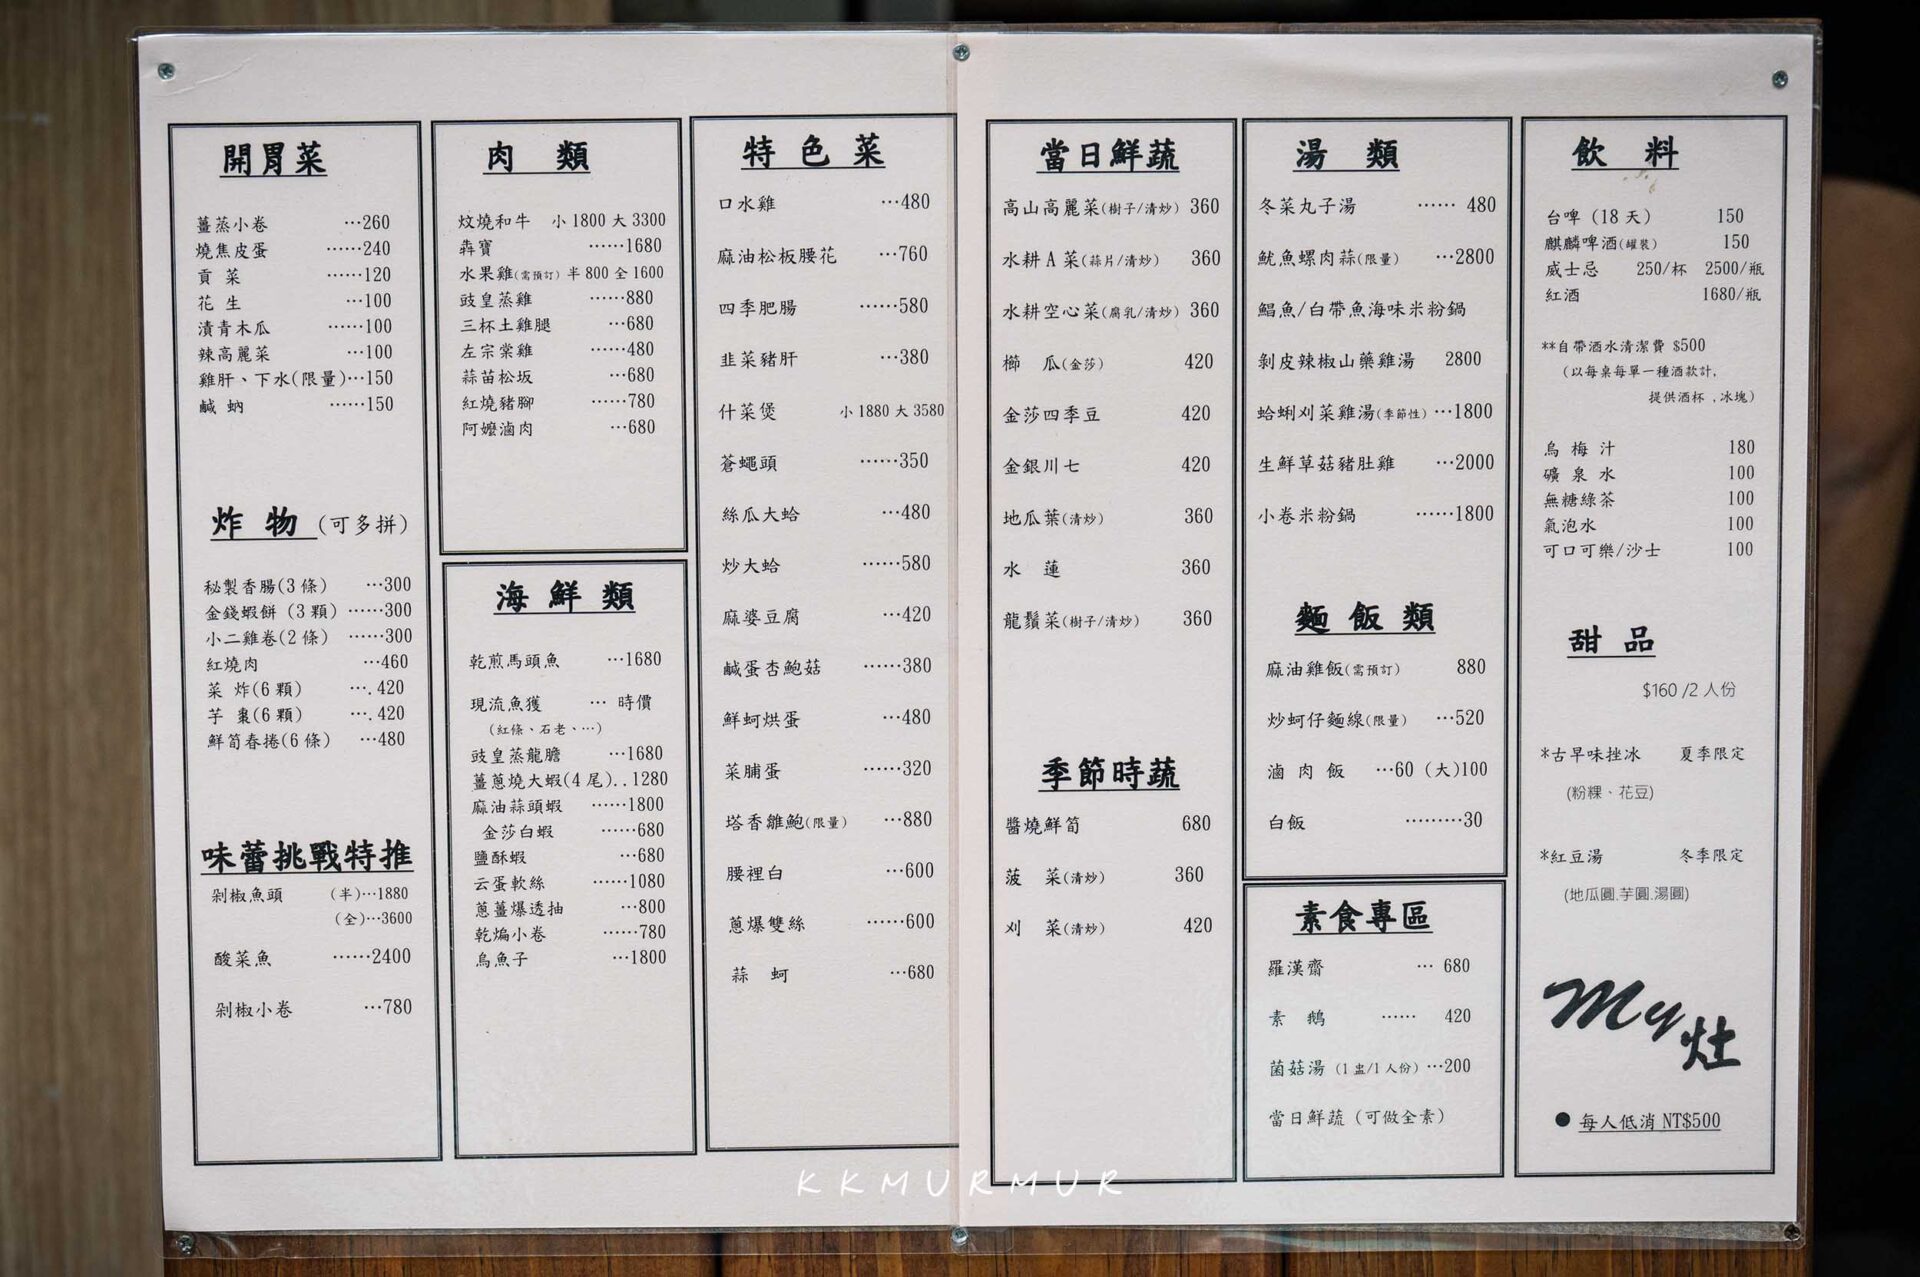 開胃菜
薑蒸小卷 …260
燒焦皮蛋 ……240
貢菜 ……120
花生 …100
漬青木瓜 ……100
辣高麗菜 …100
雞肝、下水(限量)…150
鹹蚋 ……150
炸物 (可多拼)
秘製香腸(3條) …300
金錢蝦餅 (3顆) ……300
小二雞卷(2條) ……300
紅燒肉 …460
菜炸(6顆) ….420
芋棗(6顆) ….420
鮮筍春捲(6條) …480
味蕾挑戰特推
剁椒魚頭 (半)…1880
(全)…3600
酸菜魚 ……2400
剁椒小卷 …780
肉類
炆燒和牛 小1800 大3300
犇寶 ……1680
水果雞(需預訂) 半800 全1600
豉皇蒸雞 ……880
三杯土雞腿 …680
左宗棠雞 ……480
蒜苗松坂 …680
紅燒豬腳 ……780
阿嬤滷肉 …680
海鮮類
乾煎馬頭魚 …1680
現流魚獲 … 時價
(紅條、石老、…)
豉皇蒸龍膽 …1680
薑蔥燒大蝦(4尾)..1280
麻油蒜頭蝦 ……1800
金莎白蝦 ……680
鹽酥蝦 …680
云蛋軟絲 ……1080
蔥薑爆透抽 …800
乾煸小卷 ……780
烏魚子 …1800
特色菜
口水雞 …480
麻油松板腰花 …760
四季肥腸 ……580
韭菜豬肝 …380
什菜煲 小1880 大3580
蒼蠅頭 ……350
絲瓜大蛤 …480
炒大蛤 ……580
麻婆豆腐 …420
鹹蛋杏鮑菇 ……380
鮮蚵烘蛋 …480
菜脯蛋 ……320
塔香雛鮑(限量) …880
腰裡白 …600
蔥爆雙絲 ……600
蒜蚵 …680
當日鮮蔬
高山高麗菜(樹子/清炒) 360
水耕A菜(蒜片/清炒) 360
水耕空心菜(腐乳/清炒) 360
櫛瓜(金莎) 420
金莎四季豆 420
金銀川七 420
地瓜葉(清炒) 360
水蓮 360
龍鬚菜(樹子/清炒) 360
季節時蔬
醬燒鮮筍 680
菠菜(清炒) 360
刈菜(清炒) 420
湯類
冬菜丸子湯 …… 480
魷魚螺肉蒜(限量) …2800
鯧魚/白帶魚海味米粉鍋
剝皮辣椒山藥雞湯 2800
蛤蜊刈菜雞湯(季節性) …1800
生鮮草菇豬肚雞 …2000
小卷米粉鍋 ……1800
麵飯類
麻油雞飯(需預訂) 880
炒蚵仔麵線(限量) …520
滷肉飯 …60 (大)100
白飯 ………30
素食專區
羅漢齋 … 680
素鵝 …… 420
菌菇湯 (1盅/1人份) …200
當日鮮蔬 (可做全素)
飲料
台啤 (18天) 150
麒麟啤酒(罐裝) 150
威士忌 250/杯 2500/瓶
紅酒 1680/瓶
**自帶酒水清潔費 $500
(以每桌每單一種酒款計,
提供酒杯 ,冰塊)
烏梅汁 180
礦泉水 100
無糖綠茶 100
氣泡水 100
可口可樂/沙士 100
甜品
$160 /2 人份
*古早味挫冰 夏季限定
(粉粿、花豆)
*紅豆湯 冬季限定
(地瓜圓.芋圓.湯圓)
My灶
● 每人低消 NT$500
KKMURMUR